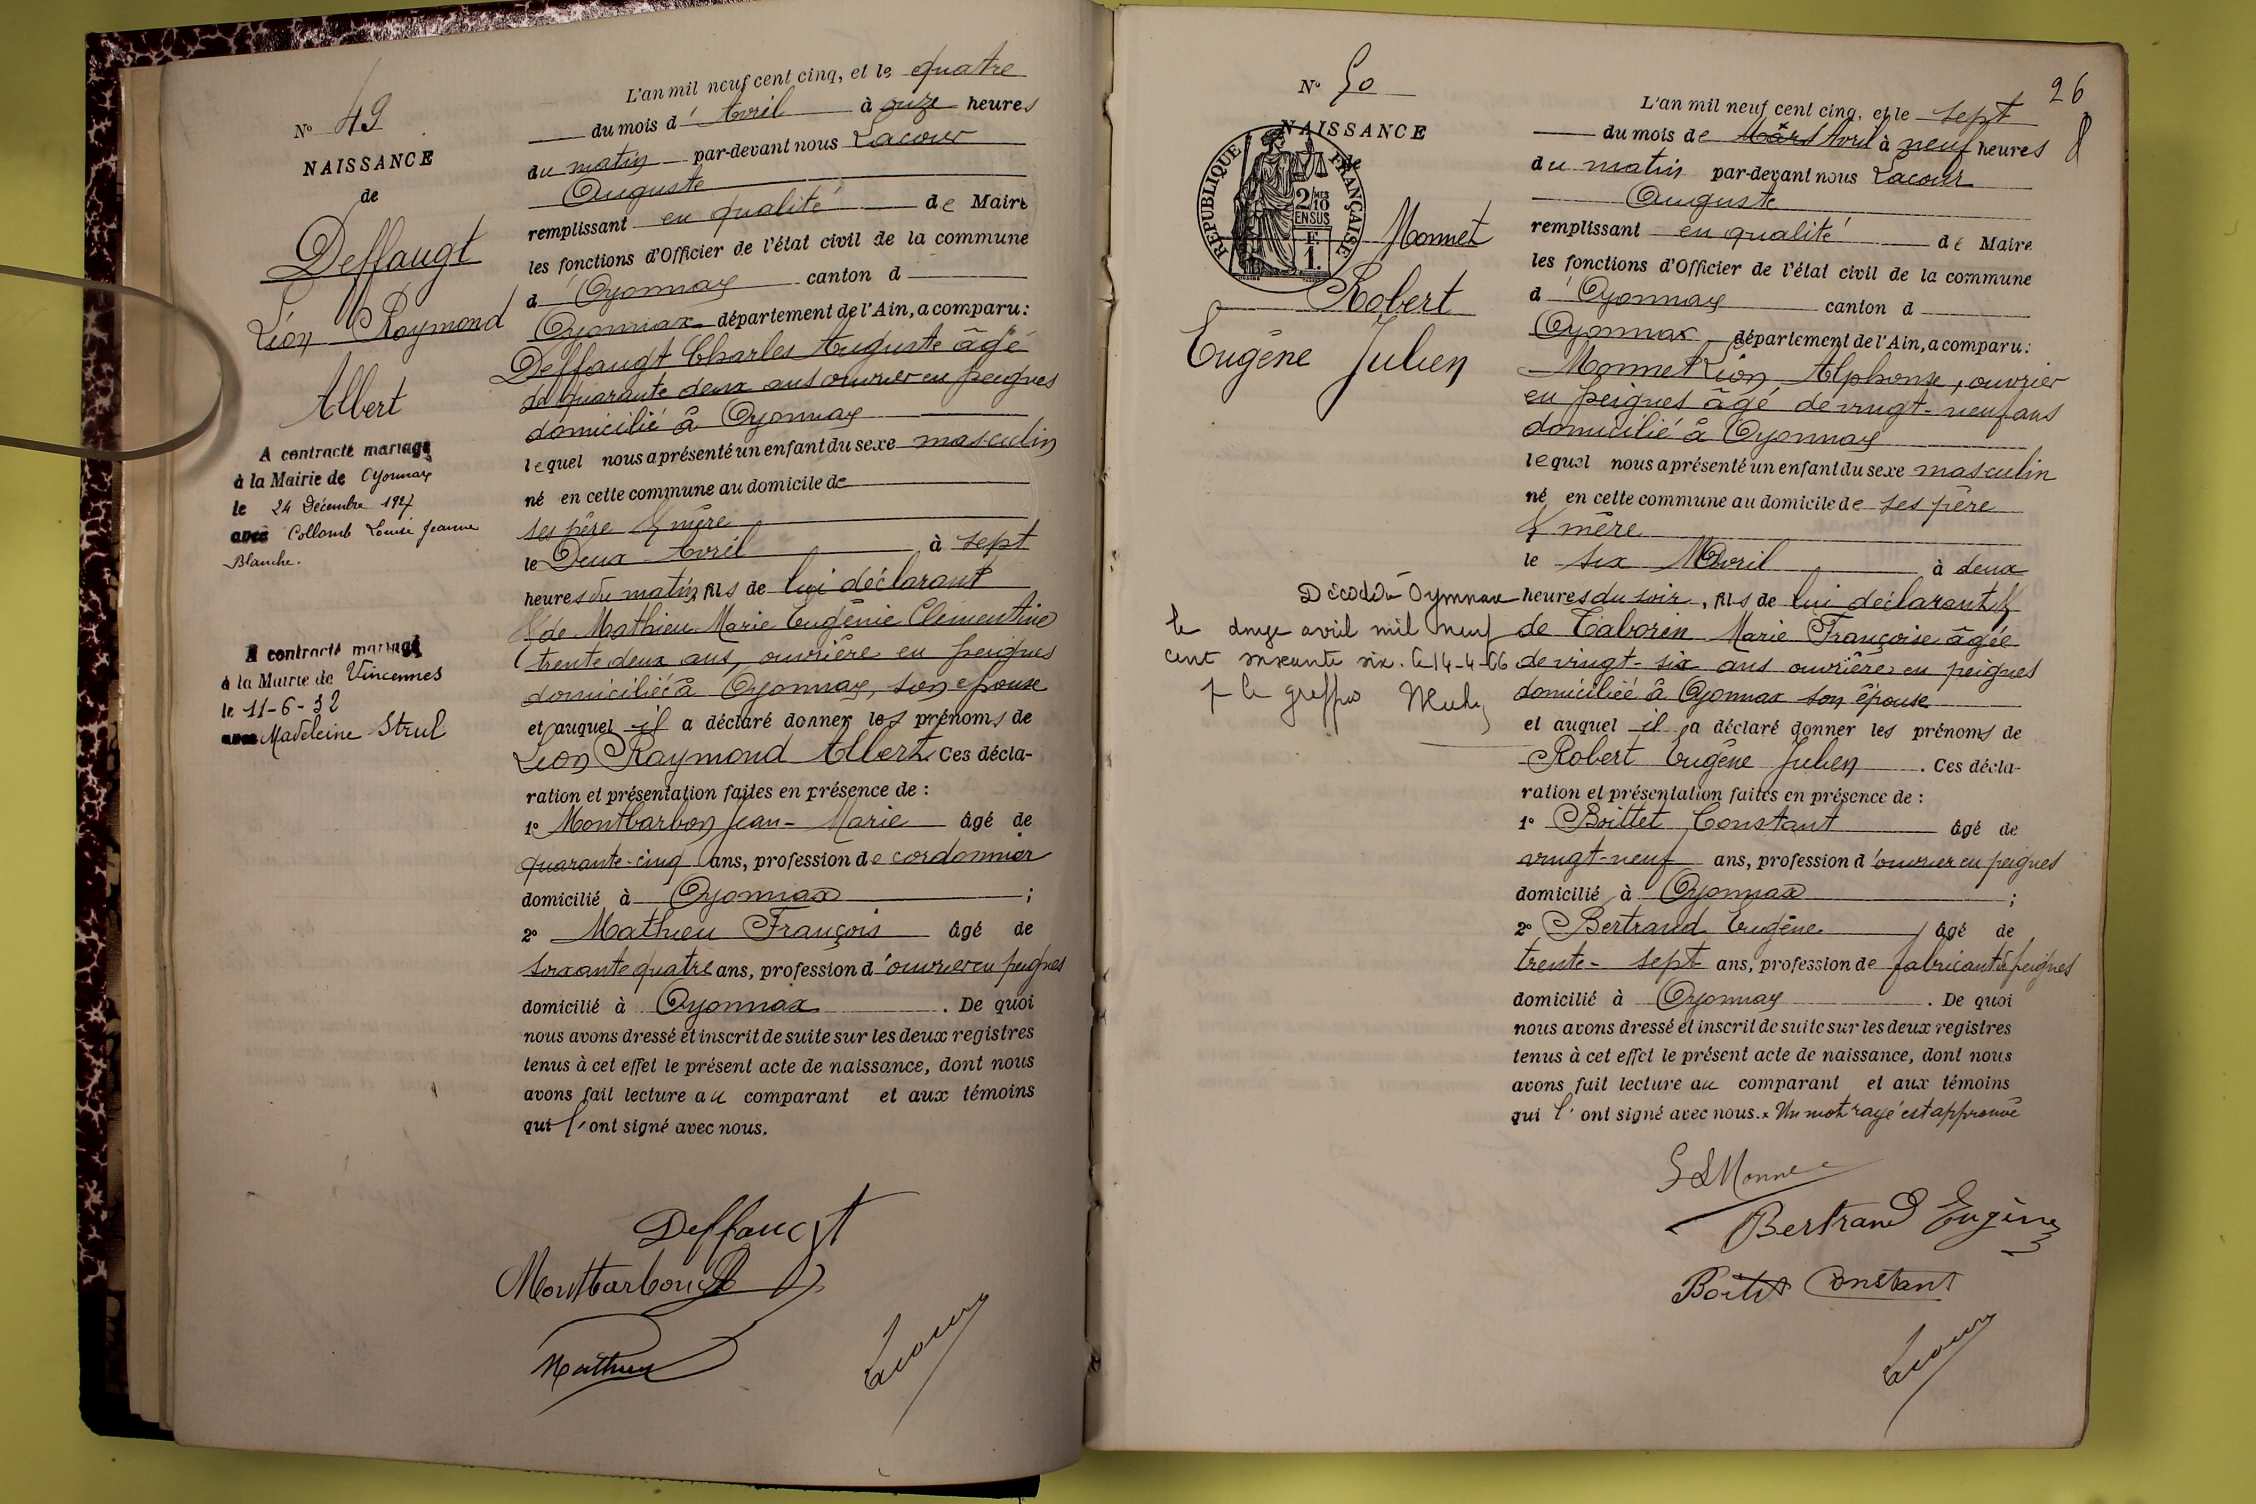 N° 49
NAISSANCE
de
Deffaugt
Léon Raymond
Albert
A contracté mariage
à la Mairie de Oyonnax
le 24 Décembre 1927
avec Collomb Louise Jeanne
Blanche.
A contracté mariage
à la Mairie de Vincennes
le 11-6-32
avec Madeleine Strul
L'an mil neuf cent cinq, et le quatre
du mois d'Avril à onze heures
du matin par-devant nous Lacour
Auguste
remplissant en qualité de Maire
les fonctions d'Officier de l'état civil de la commune
d'Oyonnax canton d
Oyonnax département de l'Ain, a comparu:
Deffaugt Charles Auguste âgé
de quarante deux ans ouvrier en peignes
domicilié à Oyonnax
lequel nous a présenté un enfant du sexe masculin
né en cette commune au domicile de
ses père & mère
le Deux Avril à sept
heures du matin, fils de lui déclarant
& de Mathieu Marie Eugénie Clémentine
trente deux ans, ouvrière en peignes
domiciliée à Oyonnax, son épouse
et auquel il a déclaré donner les prénoms de
Léon Raymond Albert. Ces décla-
ration et présentation faites en présence de :
1° Montbarbon Jean-Marie âgé de
quarante-cinq ans, profession de cordonnier
domicilié à Oyonnax ;
2° Mathieu François âgé de
soixante quatre ans, profession d'ouvrier en peignes
domicilié à Oyonnax . De quoi
nous avons dressé et inscrit de suite sur les deux registres
tenus à cet effet le présent acte de naissance, dont nous
avons fait lecture au comparant et aux témoins
qui l'ont signé avec nous.
Deffaugt
Montbarbon
Mathieu
Lacour
26
N° 50
NAISSANCE
de
RÉPUBLIQUE FRANÇAISE
2/10 MES
EN SUS
F.
1.
Monnet
Robert
Eugène Julien
Décédé à Oyonnax
le douze avril mil neuf
cent soixante six. le 14-4-66
p le greffier
L'an mil neuf cent cinq, et le sept
du mois de Mars Avril à neuf heures
du matin par-devant nous Lacour
Auguste
remplissant en qualité de Maire
les fonctions d'Officier de l'état civil de la commune
d'Oyonnax canton d
Oyonnax département de l'Ain, a comparu:
Monnet Léon Alphonse, ouvrier
en peignes âgé de vingt-neuf ans
domicilié à Oyonnax
lequel nous a présenté un enfant du sexe masculin
né en cette commune au domicile de ses père
& mère
le six Avril à deux
heures du soir, fils de lui déclarant &
de Taboren Marie Françoise âgée
de vingt-six ans ouvrière en peignes
domiciliée à Oyonnax son épouse
et auquel il a déclaré donner les prénoms de
Robert Eugène Julien . Ces décla-
ration et présentation faites en présence de :
1° Boittet Constant âgé de
vingt-neuf ans, profession d'ouvrier en peignes
domicilié à Oyonnax ;
2° Bertrand Eugène âgé de
trente-sept ans, profession de fabricant de peignes
domicilié à Oyonnax . De quoi
nous avons dressé et inscrit de suite sur les deux registres
tenus à cet effet le présent acte de naissance, dont nous
avons fait lecture au comparant et aux témoins
qui l'ont signé avec nous. x Un mot rayé est approuvé
Monnet
Bertrand Eugène
Boittet Constant
Lacour